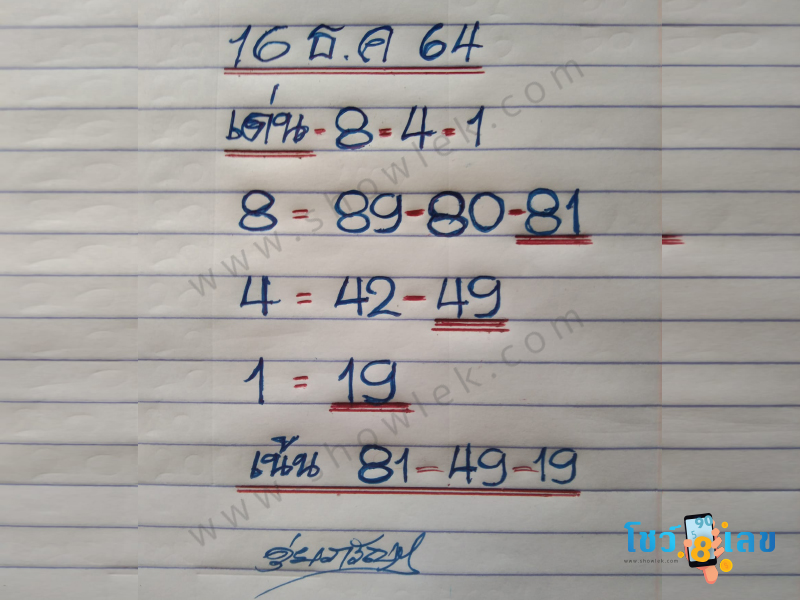 16 ธ.ค 64
เด่น-8=4-1
8 = 89-80-81
4 = 42-49
1 = 19
เน้น 81-49-19
www.showlek.com
www.showlek.com
โชว์ 8 เลข
90
www.showlek.com